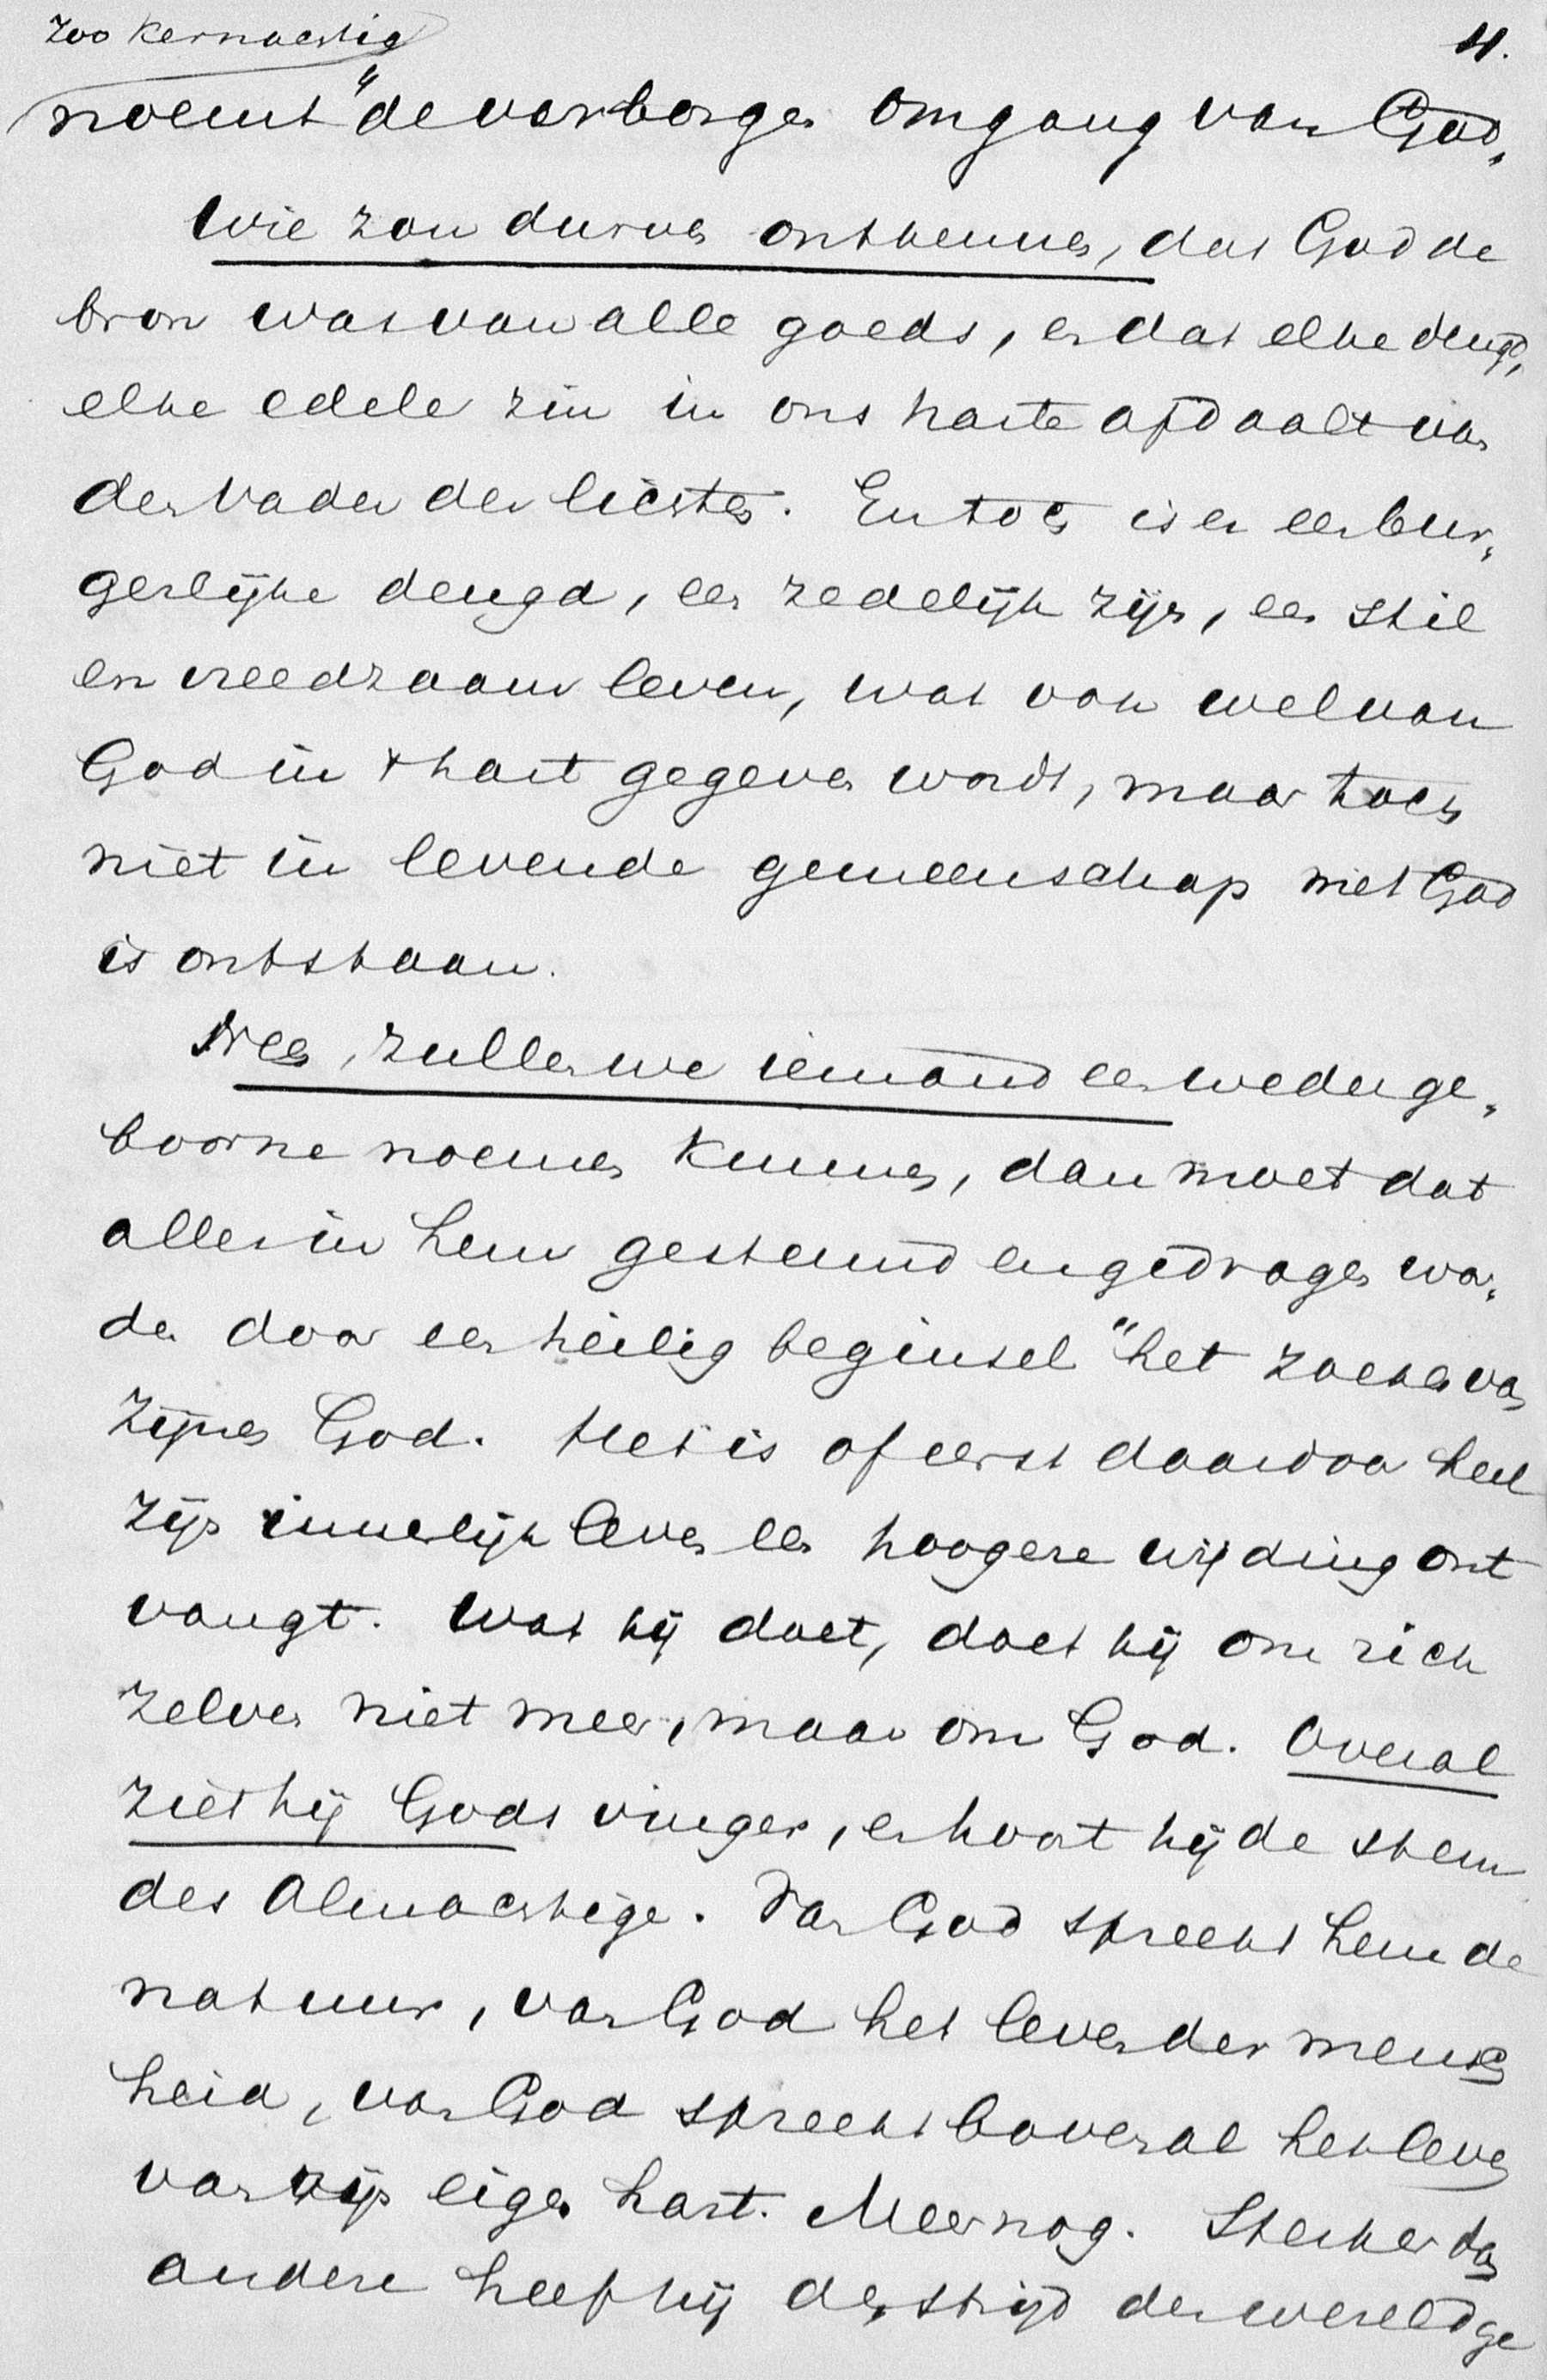 zoo kernachtig
4.
noemt "de verborgen omgang van God.
Wie zou durven ontkennen, dat God de
bron was van alle goeds, en dat elke deugd,
elke edele zin in ons harte afdaalt van
den Vader der lichten. En toch is er een bur„
gerlijke deugd, een zedelijk zijn, een stil
en vreedzaam leven, wat ook wel van
God in 't hart gegeven wordt, maar toch
niet in levende gemeenschap met God
is ontstaan.
Nee, zullen we iemand een wederge„
boorne noemen kunnen, dan moet dat
alles in hem gesteund en gedragen wor„
den door een heilig beginsel "het zoeken van
zijnen God. Het is of eerst daardoor heel
zijn innerlijk leven een hoogere wijding ont
vangt. Wat hij doet, doet hij om zich
zelven niet meer, maar om God. Overal
ziet hij Gods vinger, en hoort hij de stem
des Almachtige. Van God spreekt hem de
natuur, van God het leven der mensch
heid, van God spreekt bovenal het leven
van zijn eigen hart. Meer nog. Sterker dan
andere heeft hij den strijd der wereld ge